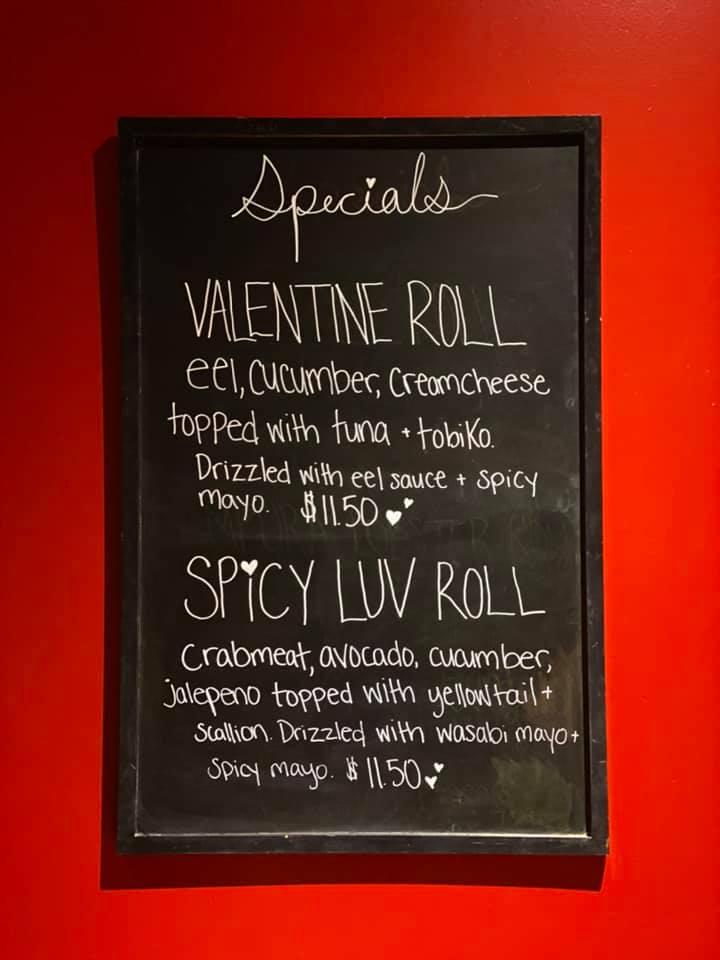 Specials
VALENTINE ROLL
eel, cucumber, creamcheese
topped with tuna + tobiko.
Drizzled with eel sauce + spicy
mayo. $11.50
SPiCY LUV ROLL
Crabmeat, avocado, cucumber,
jalepeno topped with yellowtail +
scallion. Drizzled with wasabi mayo +
spicy mayo. $11.50